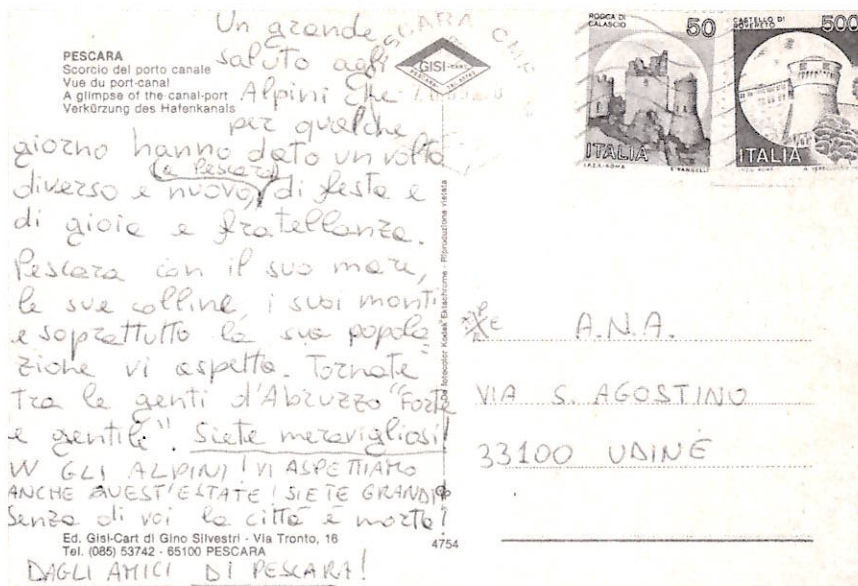 PESCARA
Scorcio del porto canale
Vue du port-canal
A glimpse of the canal-port
Verkürzung des Hafenkanals
Un grande
saluto agli
Alpini che
per qualche
giorno hanno dato un volto
(a Pescara)
diverso e nuovo, di festa e
di gioia e fratellanza.
Pescara con il suo mare,
le sue colline, i suoi monti
e soprattutto la sua popola
zione vi aspetta. Tornate
tra le genti d'Abruzzo "Forte
e gentile". Siete meravigliosi!
W GLI ALPINI! VI ASPETTIAMO
ANCHE QUEST'ESTATE! SIETE GRANDI
Senza di voi la città è morta!
Ed. Gisi-Cart di Gino Silvestri - Via Tronto, 16
Tel. (085) 53742 - 65100 PESCARA
DAGLI AMICI DI PESCARA!
4754
GISI-CART
Da fotocolor Kodak Ektachrome - Riproduzione vietata
ROCCA DI
CALASCIO
50
ITALIA
I.P.Z.S.-ROMA
CASTELLO DI
ROVERETO
500
ITALIA
A.N.A.
VIA S. AGOSTINO
33100 UDINE